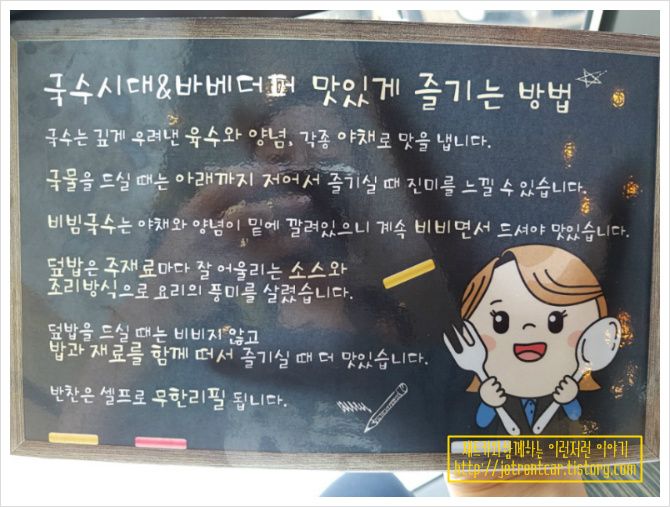 국수시대&바베더퍼 맛있게 즐기는 방법
국수는 깊게 우려낸 육수와 양념, 각종 야채로 맛을 냅니다.
국물을 드실 때는 아래까지 저어서 즐기실 때 진미를 느낄 수 있습니다.
비빔국수는 야채와 양념이 밑에 깔려있으니 계속 비비면서 드셔야 맛있습니다.
덮밥은 주재료마다 잘 어울리는 소스와
조리방식으로 요리의 풍미를 살렸습니다.
덮밥을 드실 때는 비비지 않고
밥과 재료를 함께 떠서 즐기실 때 더 맛있습니다.
반찬은 셀프로 무한리필 됩니다.
이런저런 이야기
http://jetrentcar.tistory.com